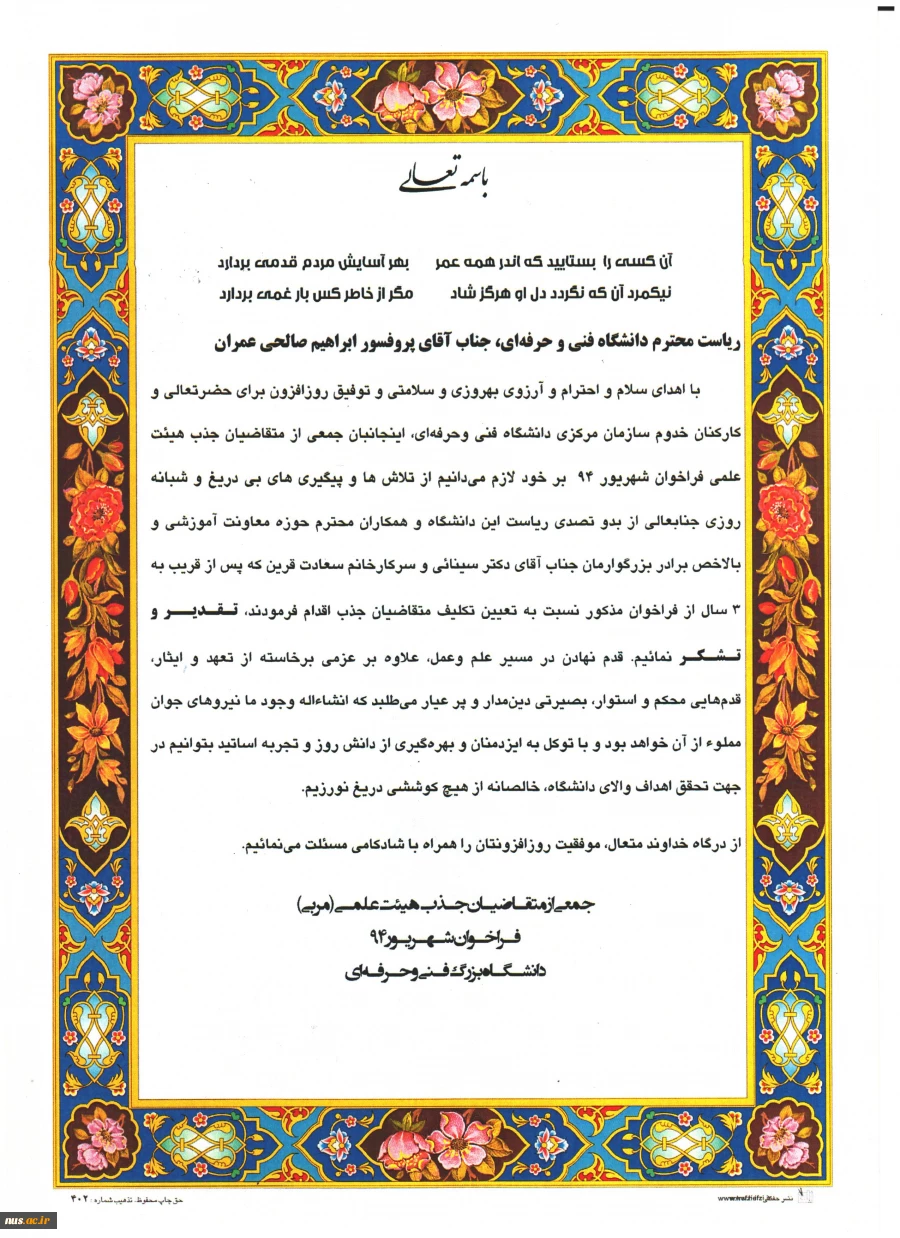 باسمه تعالی
آن کسی را بستایید که اندر همه عمر بهر آسایش مردم قدمی بردارد
نیکمرد آن که نگردد دل او هرگز شاد مگر از خاطر کس بار غمی بردارد
ریاست محترم دانشگاه فنی و حرفه‌ای، جناب آقای پروفسور ابراهیم صالحی عمران
با اهدای سلام و احترام و آرزوی بهروزی و سلامتی و توفیق روزافزون برای حضرتعالی و
کارکنان خدوم سازمان مرکزی دانشگاه فنی وحرفه‌ای، اینجانبان جمعی از متقاضیان جذب هیئت
علمی فراخوان شهریور ۹۴ بر خود لازم می‌دانیم از تلاش ها و پیگیری های بی دریغ و شبانه
روزی جنابعالی از بدو تصدی ریاست این دانشگاه و همکاران محترم حوزه معاونت آموزشی و
بالاخص برادر بزرگوارمان جناب آقای دکتر سینائی و سرکارخانم سعادت قرین که پس از قریب به
۳ سال از فراخوان مذکور نسبت به تعیین تکلیف متقاضیان جذب اقدام فرمودند، تقدیر و
تشکر نمائیم. قدم نهادن در مسیر علم وعمل، علاوه بر عزمی برخاسته از تعهد و ایثار،
قدم‌هایی محکم و استوار، بصیرتی دین‌مدار و پر عیار می‌طلبد که انشاءاله وجود ما نیروهای جوان
مملوء از آن خواهد بود و با توکل به ایزدمنان و بهره‌گیری از دانش روز و تجربه اساتید بتوانیم در
جهت تحقق اهداف والای دانشگاه، خالصانه از هیچ کوششی دریغ نورزیم.
از درگاه خداوند متعال، موفقیت روزافزونتان را همراه با شادکامی مسئلت می‌نمائیم.
جمعی از متقاضیان جذب هیئت علمی (مربی)
فراخوان شهریور ۹۴
دانشگاه بزرگ فنی و حرفه‌ای
حق چاپ محفوظ. تذهیب شماره : ۴۰۲
نشر حفظی
nus.ac.ir